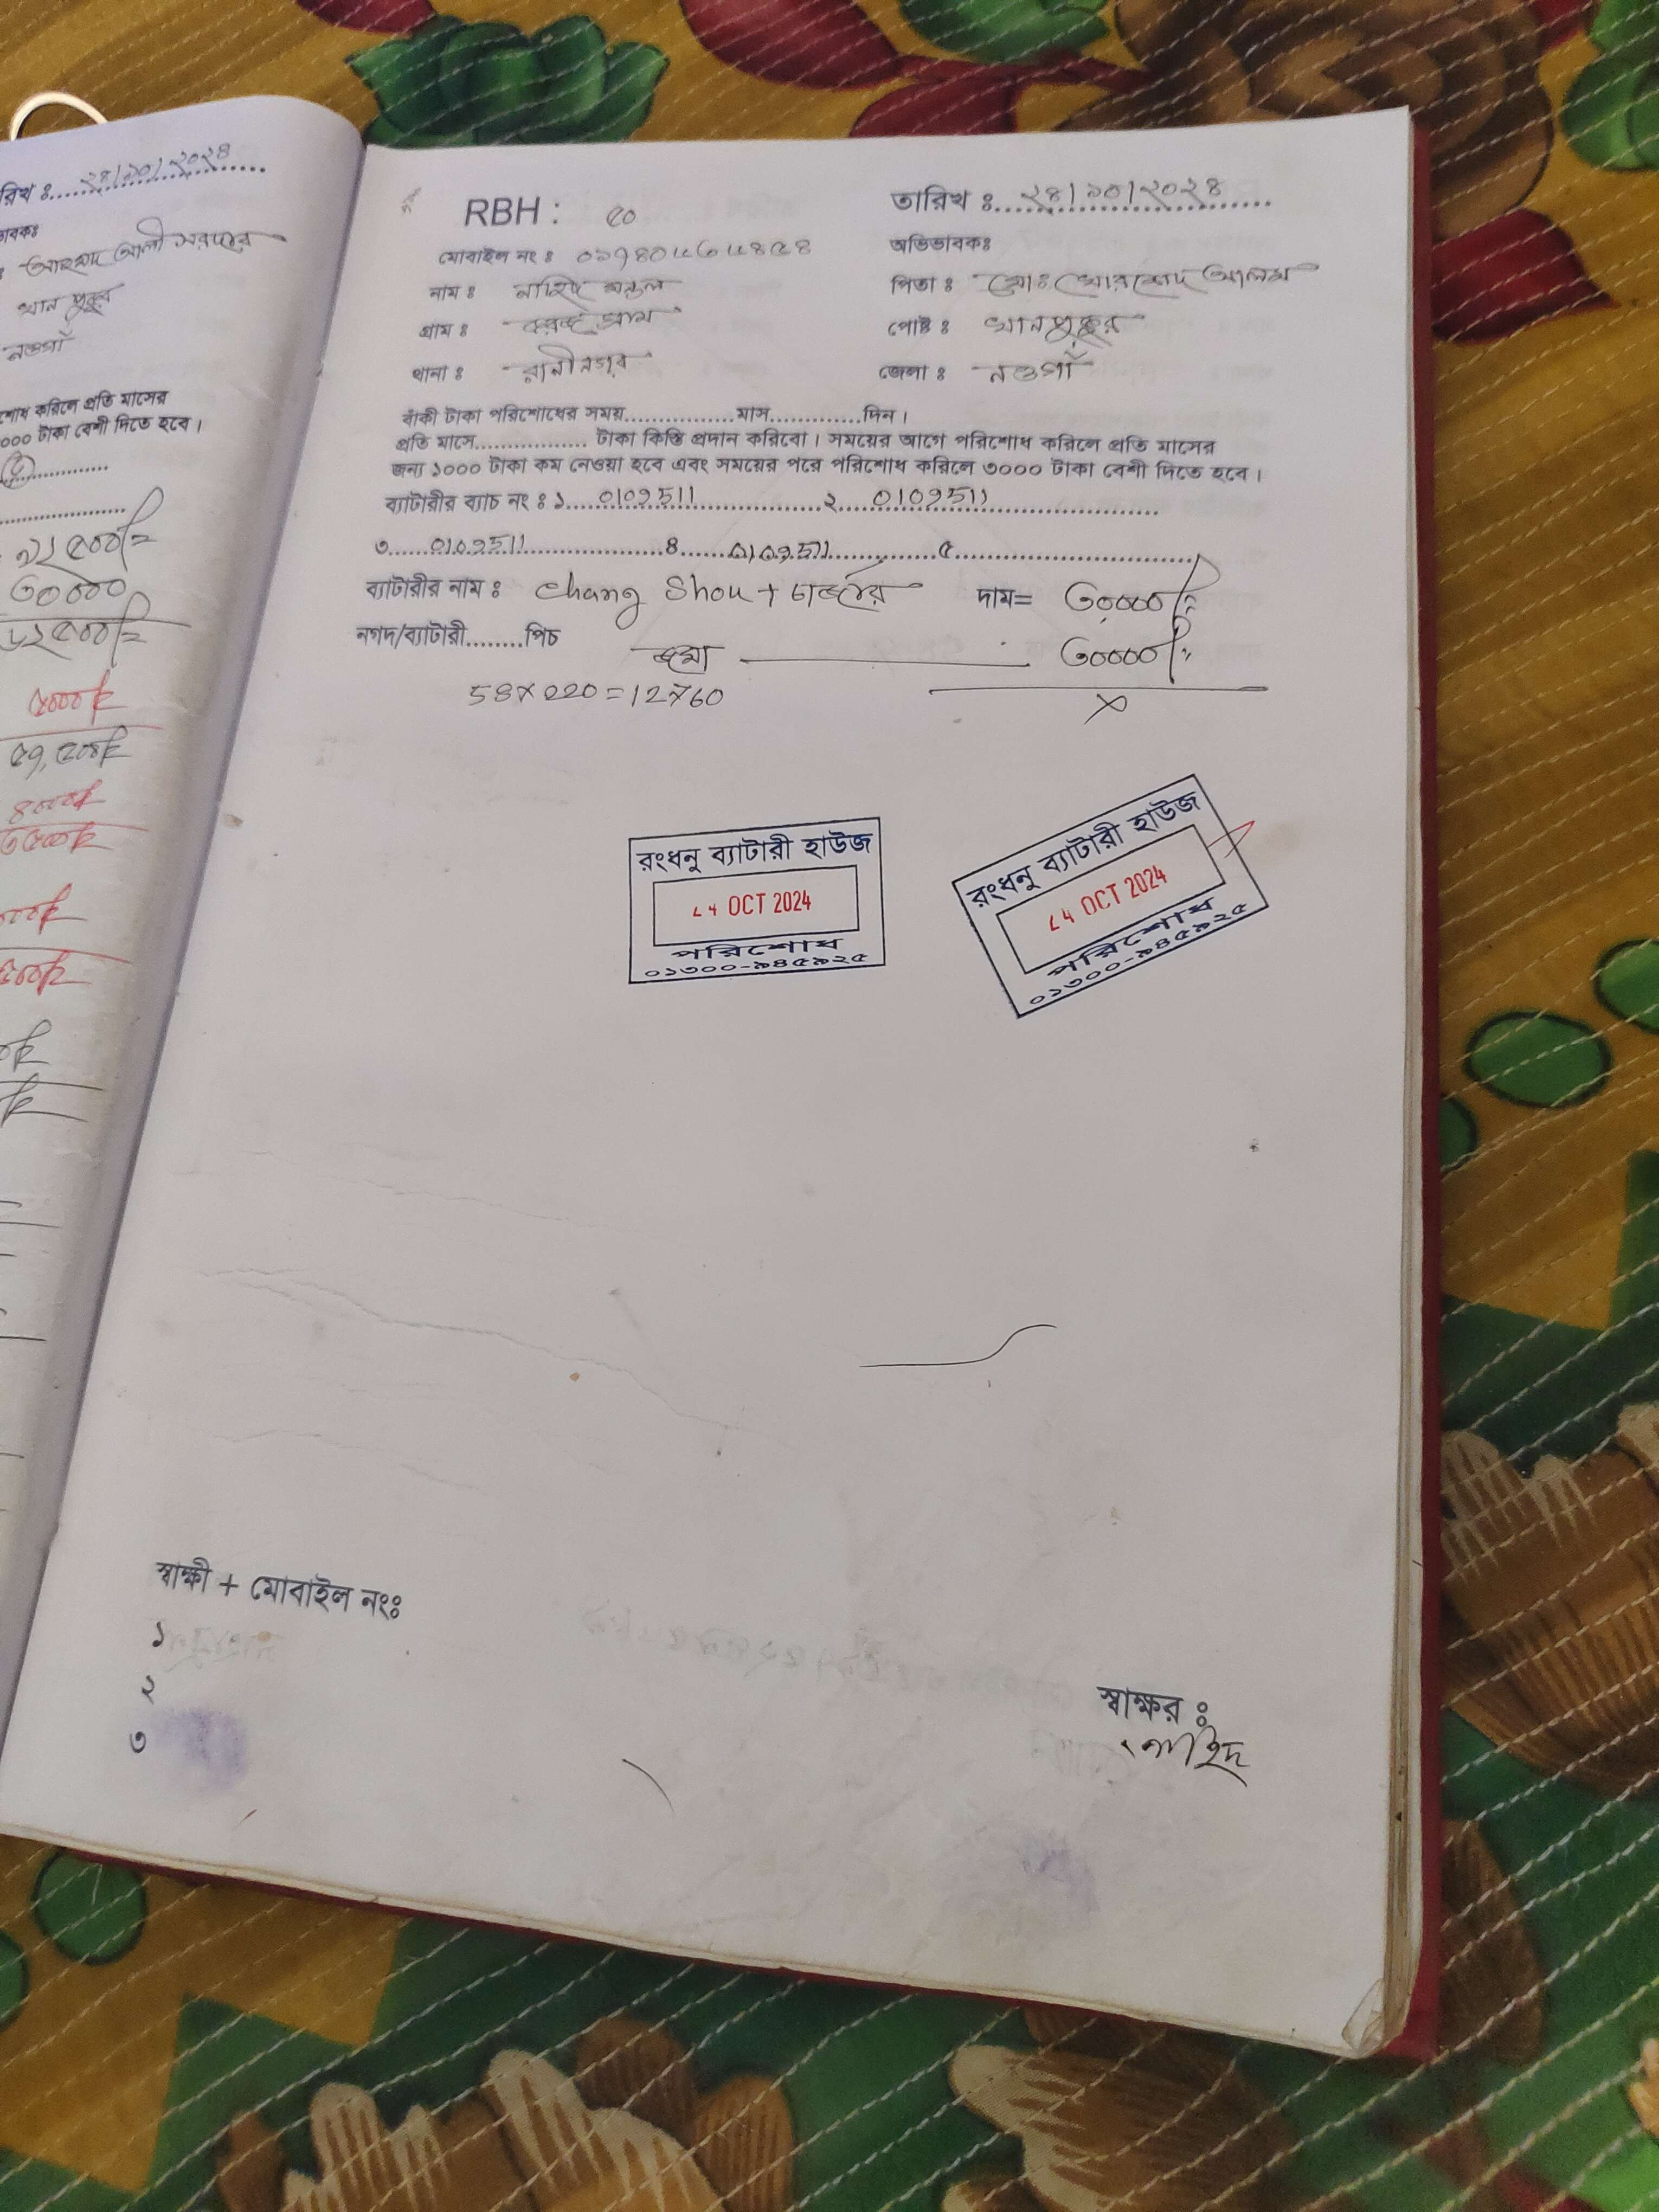 রিখ ঃ.....২৪/১০/২০২৪
ভাবকঃ
নওগাঁ
শোধ করিলে প্রতি মাসের
০০০ টাকা বেশী দিতে হবে।
৩০০০০
RBH : ৫০
তারিখ ঃ...২৪/১০/২০২৪
মোবাইল নং ঃ
অভিভাবকঃ
নাম ঃ নাহিদ মন্ডল
পিতা ঃ মোঃ খোরশেদ আলম
গ্রাম ঃ
পোষ্ট ঃ খানপুকুর
থানা ঃ রানীনগর
জেলা ঃ নওগাঁ
বাঁকী টাকা পরিশোধের সময়................মাস.............দিন।
প্রতি মাসে................. টাকা কিস্তি প্রদান করিবো। সময়ের আগে পরিশোধ করিলে প্রতি মাসের
জন্য ১০০০ টাকা কম নেওয়া হবে এবং সময়ের পরে পরিশোধ করিলে ৩০০০ টাকা বেশী দিতে হবে।
ব্যাটারীর ব্যাচ নং ঃ ১....0109511....২....0109511....
৩....0109511....৪....0109511....৫....
ব্যাটারীর নাম ঃ Chang Shou + চার্জার দাম= ৩০০০০/=
নগদ/ব্যাটারী........পিচ
জমা ৩০০০০/=
58×220=12760
×
রংধনু ব্যাটারী হাউজ
24 OCT 2024
পরিশোধ
০১৩০০-৯৪৫৯২৫
রংধনু ব্যাটারী হাউজ
24 OCT 2024
পরিশোধ
০১৩০০-৯৪৫৯২৫
স্বাক্ষী + মোবাইল নংঃ
১
২
৩
স্বাক্ষর ঃ
নাহিদ